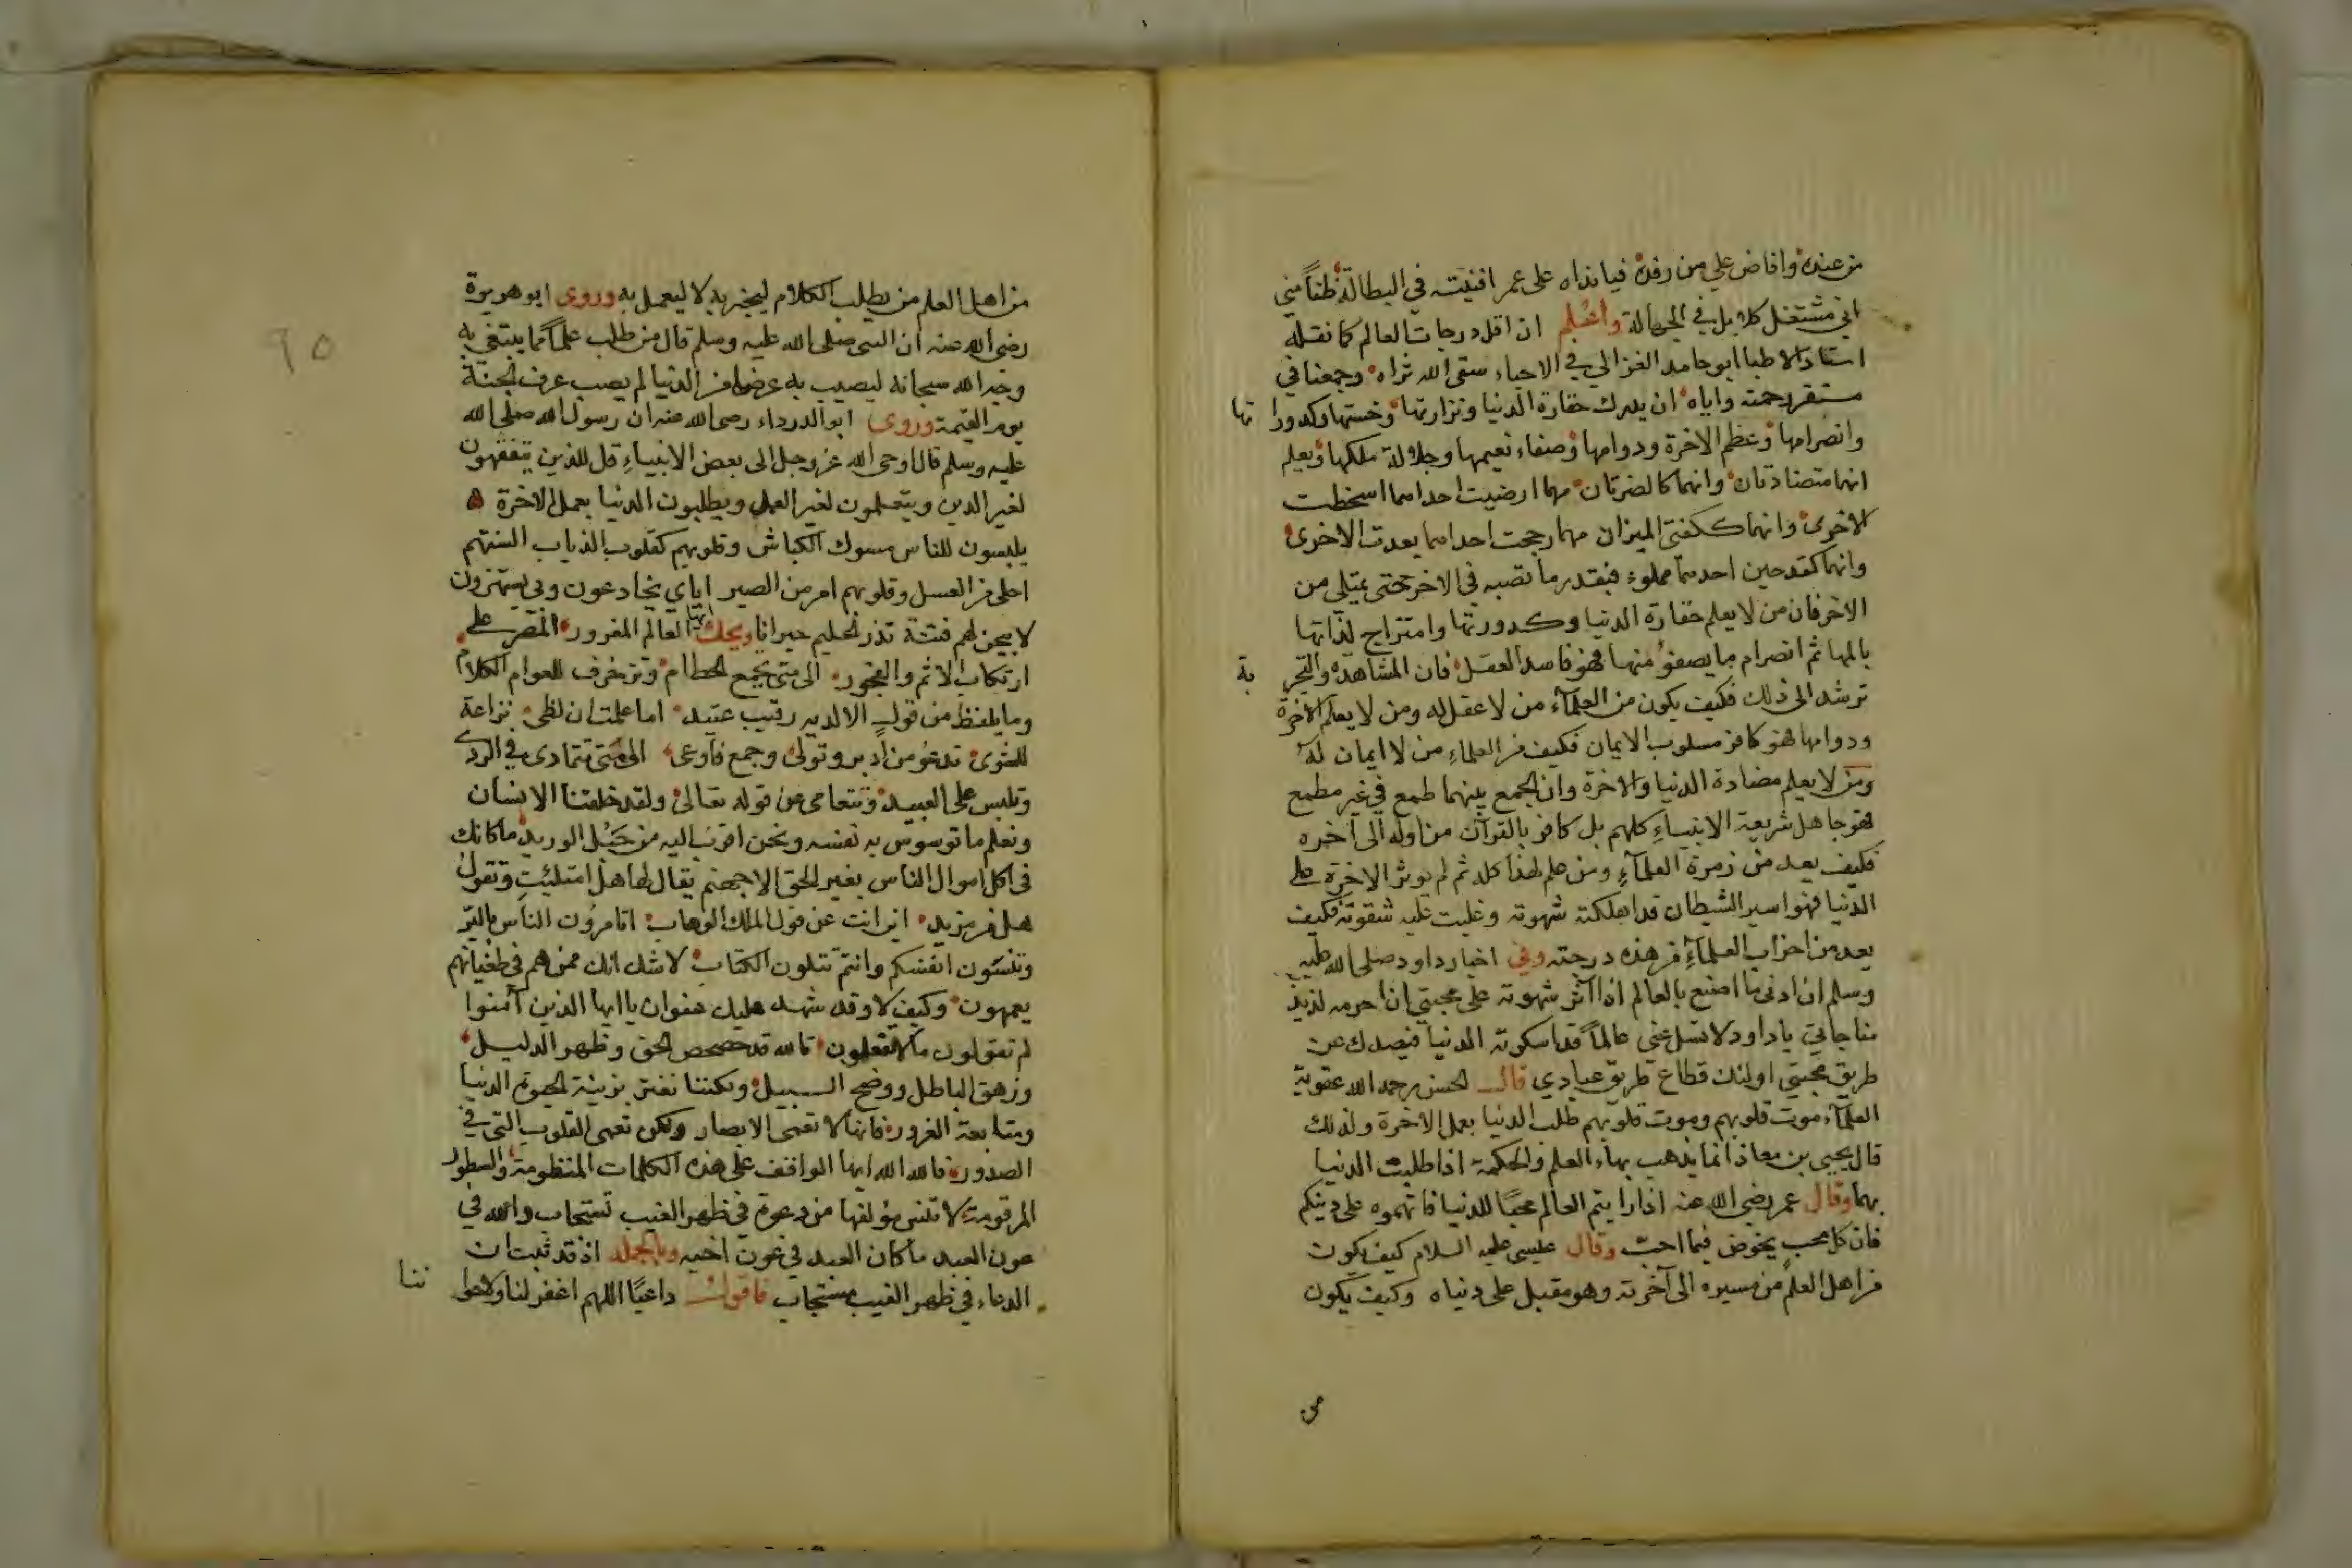 من عنده وافاض علي من رفده فيا نداه على عمر افنيته في البطالة ظناً مني
اني مشتغل كلا بل في الجهالة واعلم ان اقل درجات العالم كما نقله
استاد الاطبا ابو حامد الغزالي في الاحياء سقى الله ثراه وجمعنا في
مستقر رحمته واياه ان يدرك حقارة الدنيا ونزارتها وخستها وكدوراتها
وانصرامها وعظم الاخرة ودوامها وصفاء نعيمها وجلالة ملكها ويعلم
انهما متضادتان وانهما كالضرتان مهما ارضيت احداهما اسخطت
الاخرى وانهما ككفتي الميزان مهما رجحت احداهما بعدت الاخرى
وانهما كقدحين احدهما مملوء فبقدر ما تصبه في الاخر حتى يمتلي من
الاخر فان من لا يعلم حقارة الدنيا وكدورتها وامتزاج لذاتها
بالمها ثم انصرام ما يصفو منها فهو فاسد العقل فان المشاهدة والتجربة
ترشد الى ذلك فكيف يكون من العلماء من لا عقل له ومن لا يعلم الاخرة
ودوامها فهو كافر مسلوب الايمان فكيف من العلماء من لا ايمان له
ومن لا يعلم مضادة الدنيا والاخرة وان الجمع بينهما طمع في غير مطمع
فهو جاهل شريعة الانبياء كلهم بل كافر بالقرآن من اوله الى آخره
فكيف يعد من زمرة العلماء ومن علم هذا كله ثم لم يوثر الاخرة على
الدنيا فهو اسير الشيطان قد اهلكته شهوته وغلبت عليه شقوته فكيف
يعد من احزاب العلماء من هذه درجته وفي اخبار داود صلى الله عليه
وسلم ان ادنى ما اصنع بالعالم اذا آثر شهوته على محبتي ان احرمه لذيذ
مناجاتي يا داود لا تسل عني عالماً قد اسكرته الدنيا فيصدك عن
طريق محبتي اولئك قطاع طريق عبادي قال الحسن رحمه الله عقوبة
العلماء موت قلوبهم وموت قلوبهم طلب الدنيا بعمل الاخرة ولذلك
قال يحيى بن معاذ انما يذهب بهاء العلم والحكمة اذا طلبت الدنيا
بهما وقال عمر رضي الله عنه اذا رايتم العالم محبًا للدنيا فاتهموه على دينكم
فان كل محب يخوض فيما احبّ وقال عيسى عليه السلام كيف يكون
من اهل العلم من مسيره الى آخرته وهو مقبل على دنياه وكيف يكون
من
٩٥
من اهل العلم من يطلب الكلام ليخبر به لا ليعمل به وروى ابو هريرة
رضي الله عنه ان النبي صلى الله عليه وسلم قال من طلب علمًا مما يبتغي به
وجه الله سبحانه ليصيب به عرضا من الدنيا لم يصب عرف الجنة
يوم القيمة وروى ابو الدرداء رضي الله عنه ان رسول الله صلى الله
عليه وسلم قال اوحى الله عز وجل الى بعض الانبياءِ قل للذين يتفقهون
لغير الدين ويتعلمون لغير العمل ويطلبون الدنيا بعمل الاخرة
يلبسون للناس مسوك الكباش وقلوبهم كقلوب الذياب السنتهم
احلى من العسل وقلوبهم امر من الصبر اياي يخادعون وبي يستهزون
لابيحن لهم فتنة تذر الحليم حيرانا ويحك ايها العالم المغرور المصر على
ارتكاب الاثم والفجور الى متى تجمع الحطام وتزخرف للعوام الكلام
وما يلفظ من قولٍ الا لديه رقيب عتيد اما علمت ان لظى نزاعة
للشوى تدعو من ادبر وتولى وجمع فاوعى الى متى تتمادى في الردى
وتلبس على العبيد وتتعامى عن قوله تعالى ولقد خلقنا الانسان
ونعلم ما توسوس به نفسه ونحن اقرب اليه من حبل الوريد ما كانك
في اكل اموال الناس بغير الحق الا جهنم يقال لها هل امتلئتِ وتقول
هل من مزيد اين انت عن قول الملك الوهاب اتامرون الناس بالبر
وتنسون انفسكم وانتم تتلون الكتاب لا شك انك ممن هم في طغيانهم
يعمهون وكيف لا وقد شهد عليك عنوان يا ايها الذين آمنوا
لم تقولون ما لا تفعلون تالله قد حصحص الحق وظهر الدليل
وزهق الباطل ووضح السبيل ولكننا نغتر بزينة الحيوة الدنيا
ومتابعة الغرور فانها لا تعمى الابصار ولكن تعمى القلوب التي في
الصدور فالله الله ايها الواقف على هذه الكلمات المنظومة والسطور
المرقومة لا تنس مؤلفها من دعوة في ظهر الغيب تستجاب والله في
عون العبد ما كان العبد في عون اخيه وبالجملة اذ قد ثبت ان
الدعاء في ظهر الغيب مستجاب فاقول داعيًا اللهم اغفر لنا ولاحبا
ننا